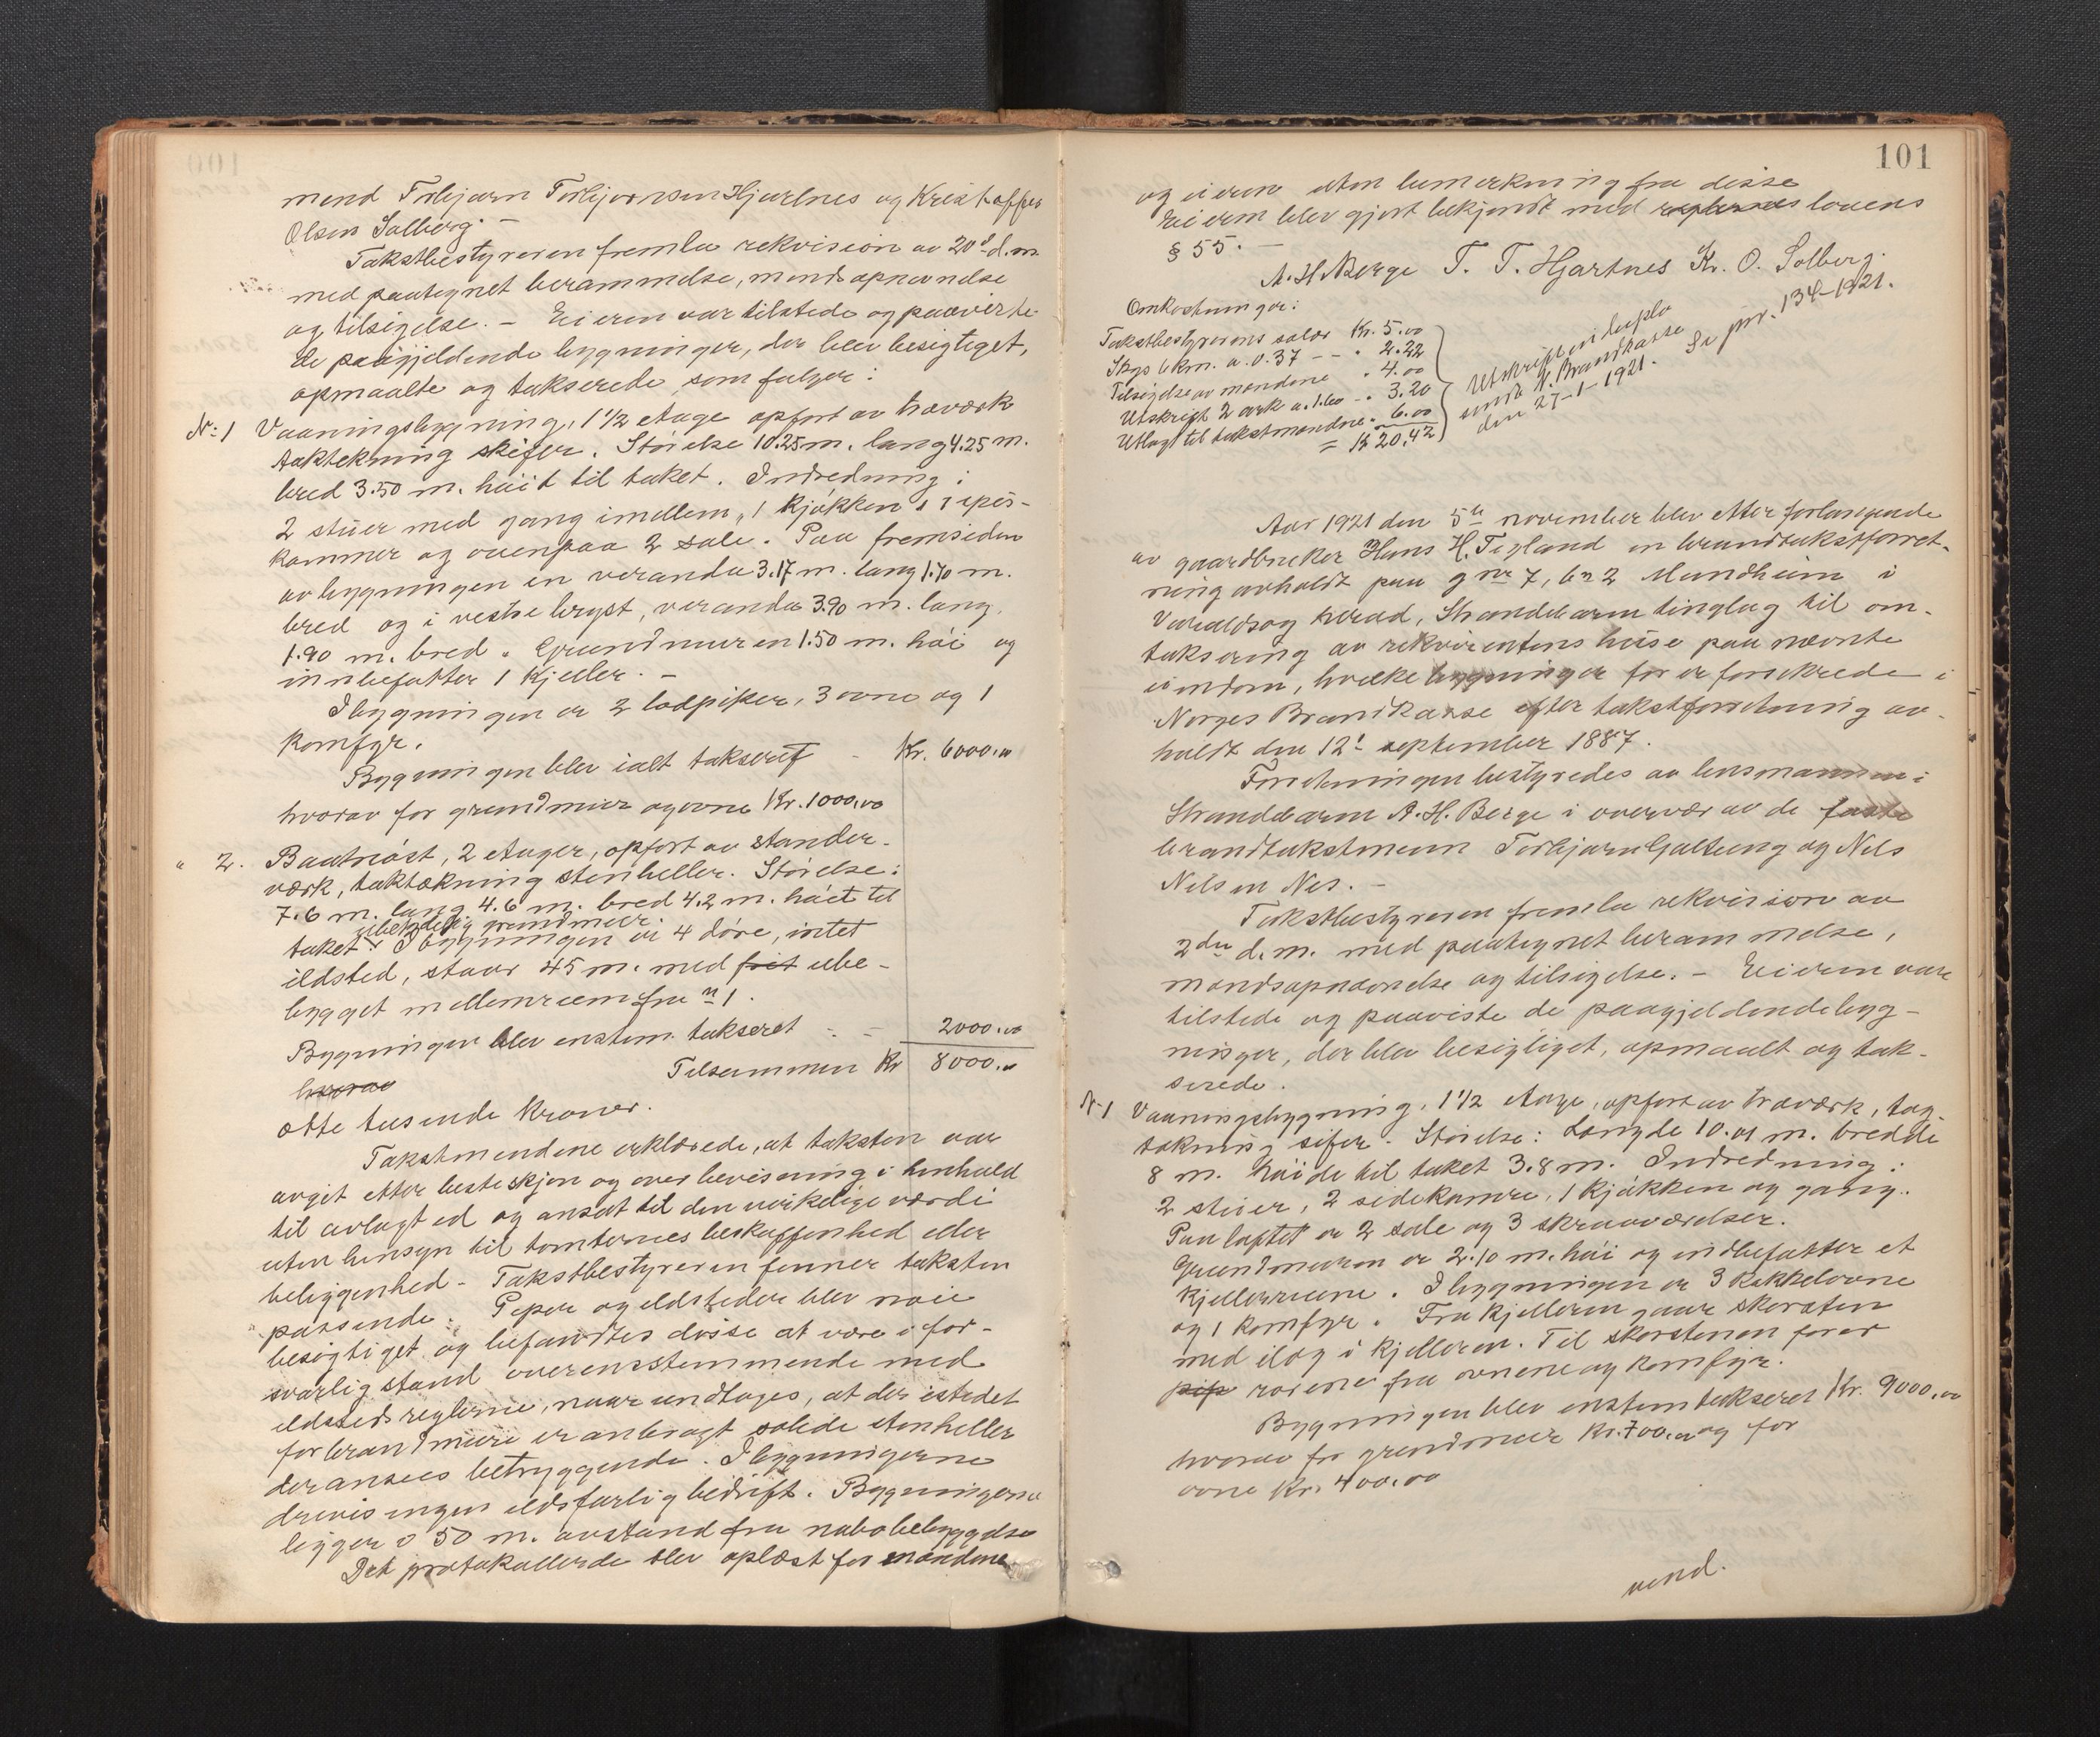 mend Torbjørn Torbjørnsen Hjartnes og Kristoffer
Olsen Solberg. –
Takstbestyreren fremla rekvision av 20d d.m.
med paategnet berammelse, mendsopnævnelse
og tilsigelse. – Eieren var tilstede og paaviste
de paagjeldende bygninger, der blev besigtiget,
opmaalte og takserede som følger:
No 1 Vaaningsbygning, 1 1/2 etage opført av træværk
taktekning skifer. Størelse 10.25 m. lang 4.25 m.
bred 3.50 m. høid til taket. Indredning:
2 stuer med gang imellem, 1 kjøkken, 1 spis-
kammer og ovenpaa 2 sale. Paa fremsiden
av bygningen en veranda 3.17 m. lang 1.70 m.
bred og i vestre bryst, veranda 3.90 m. lang,
1.90 m. bred. Grundmuren 1.50 m. høi og
innbefatter 1 kjeller. –
I bygningen er 2 lodpiper, 3 ovne og 1
komfyr.
Bygningen blev ialt takseret – Kr. 6000.00
hvorav for grundmur og ovne Kr. 1000.00
" 2. Baatnøst, 2 etager, opført av stander-
værk, taktækning stenheller. Størelse:
7.6 m. lang 4.6 m. bred 4.2 m. høit til
ubetydelig grundmur.
taket. I bygningen er 4 døre, intet
ildsted, staar 45 m. med frit ube-
bygget mellemrum fra n 1.
Bygningen blev enstem. takseret – – 2000.00
Tilsammen Kr 8000.00
hvorav
otte tusende kroner.
Takstmendene erklærede, at taksten var
avgit efter beste skjøn og overbevisning i henhold
til avlagt ed og ansat til den virkelige værdi
uten hensyn til tomternes beskaffenhed eller
beliggenhed – Takstbestyreren finner taksten
passende. Piper og ildsteder blev nøie
besigtiget og befandtes disse at være i for-
svarlig stand overensstemmende med
ildstedsreglerne, naar undtages, at der istedet
for brandmure er anbragt solide stenheller
der ansees betryggende. I bygningerne
drives ingen ildsfarlig bedrift. Bygningerne
ligger o 50 m. avstand fra nabobebyggelse
Det protokollerede blev oplæst for mændene
101
og eieren uten bemerkning fra disse
Eieren blev gjort bekjendt med lovens
§ 55. –
A. H. Berge T. T. Hjartnes Kr. O. Solberg.
Omkostninger:
Takstbestyrerens salær Kr. 5.00
Skys 6 km. a. 0.37 – – " 2.22
Tilsigelse av mændene " 4.00
Utskrift 2 ark a. 1.60 – " 3.20
Utlagt til takstmændene " 6.00
= Kr 20.42
Utskriften i duplo
sendt N. Brandkasse
den 27-1-1921.
Se pnr. 134-1921.
Aar 1921 den 5te november blev efter forlangende
av gaardbruker Hans H. Tigland en brandtakstforret-
ning avholdt paa gnr 7, bn 2 Mundheim i
Varaldsøy herad, Strandebarm tinglag til om-
taksering av rekvirentens huse paa nævnte
eiendom, hvilke bygninger før er forsikrede i
Norges Brandkasse efter takstforretning av-
holdt den 12t september 1887.
Forretningen bestyredes av lensmannen i
Strandebarm A. H. Berge i overvær av de faste
brandtakstmenn Torbjørn Galtung og Nils
Nilsen Nes. –
Takstbestyreren fremla rekvision av
2den d.m. med paategnet berammelse,
mændsopnævnelse og tilsigelse. – Eieren var
tilstede og paaviste de paagjeldende byg-
ninger, der blev besigtiget, opmaalt og tak-
serede.
N 1 Vaaningsbygning, 1 1/2 etage, opført av træværk, tag-
tækning sifer. Størelse: Længde 10.01 m. bredde
8 m. høide til taket 3.8 m. Indredning:
2 stuer, 2 sidekamre, 1 kjøkken og gang.
Paa loptet er 2 sale og 3 skraaværelser.
Grundmuren er 2.10 m. høi og indbefatter et
kjellerrum. I bygningen er 3 kakkelovne
og 1 komfyr. Fra kjelleren gaar skorsten
med ilæg i kjelleren. Til skorstenen fører
pipe rørene fra ovnene og komfyr.
Bygningen blev enstem takseret Kr. 9000.00
hvorav for grundmur Kr. 700.00 og for
ovne Kr. 400.00
vend.